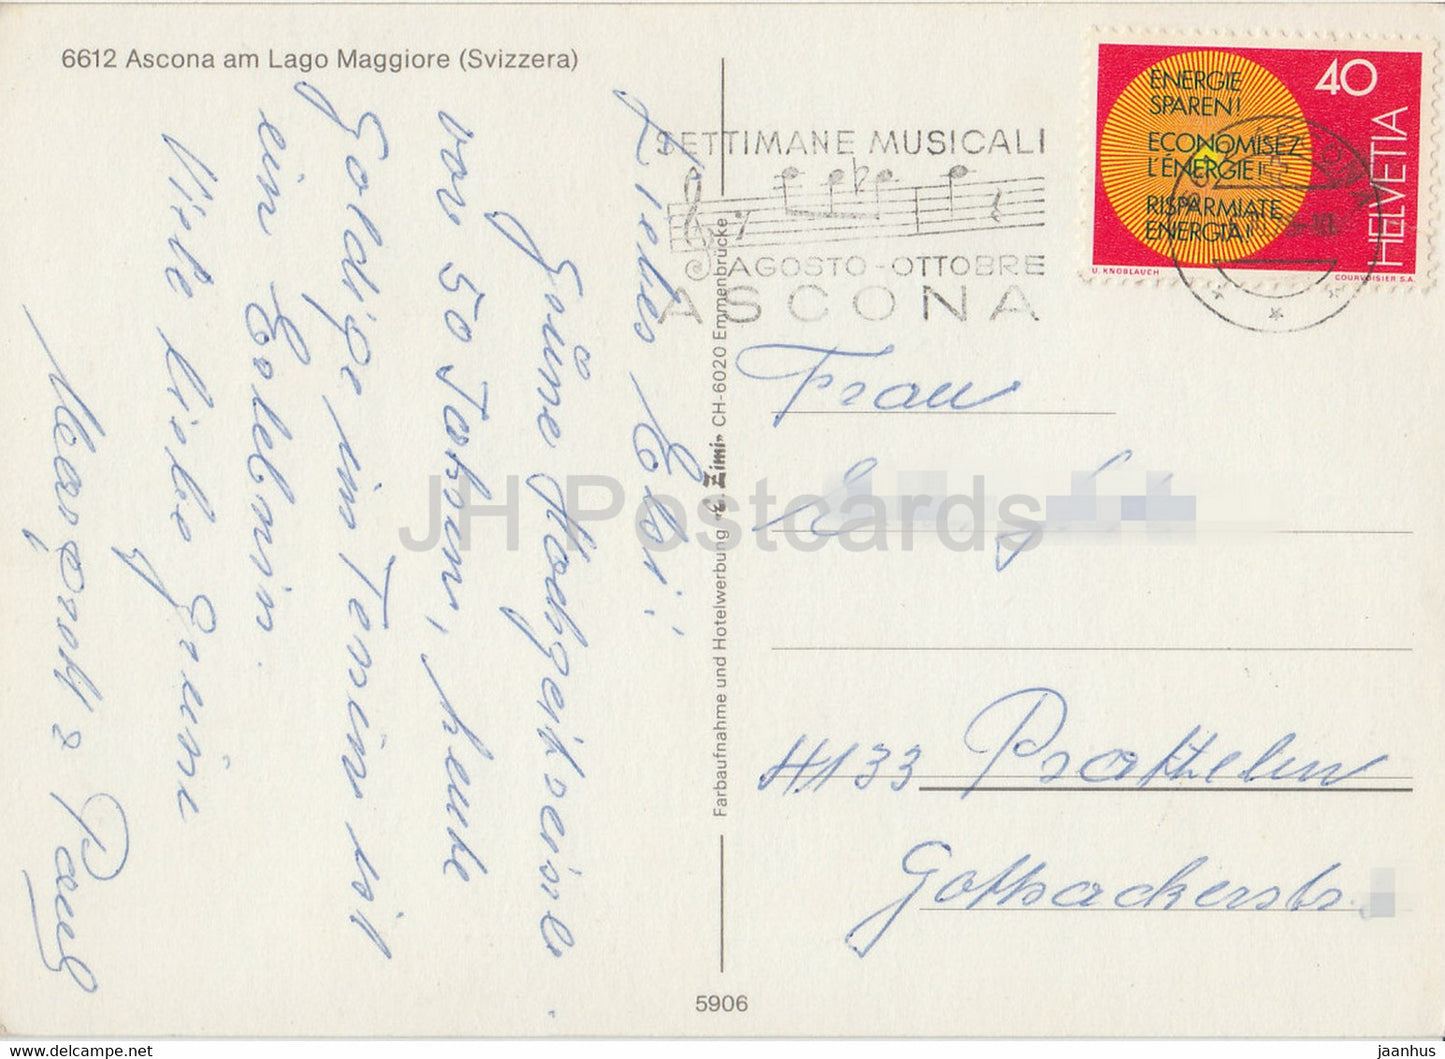 6612 Ascona am Lago Maggiore (Svizzera)
SETTIMANE MUSICALI
AGOSTO - OTTOBRE
ASCONA
ENERGIE
SPAREN!
ECONOMISEZ
L'ÉNERGIE!
RISPARMIATE
ENERGIA!
40
HELVETIA
U. KNOBLAUCH
COURVOISIER S.A.
Liebes Elsi!
Grüne Hochzeitsreise
vor 50 Jahren, heute
Goldige im Tessin ist
ein Erlebnis.
Viele liebe Grüsse
Margrith & Paul
Farbaufnahme und Hotelwerbung «E. Zimi» CH-6020 Emmenbrücke
Frau
4133 Pratteln
Gottesackerstr.
5906
JH Postcards
www.delcampe.net
jaanhus